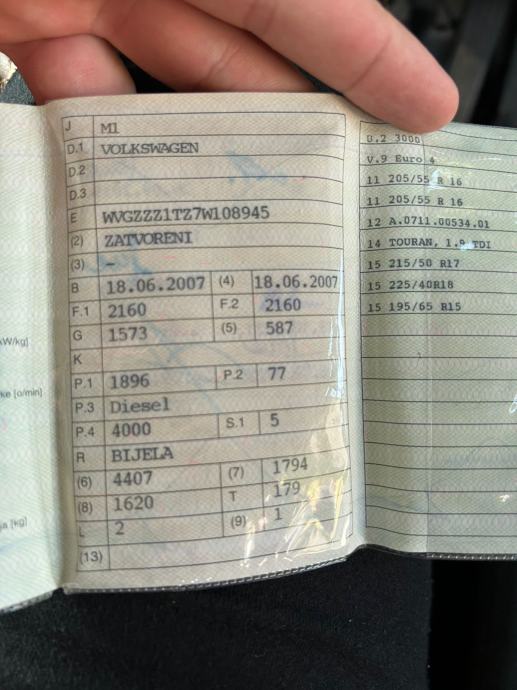 J M1
D.1 VOLKSWAGEN
D.2
D.3
E WVGZZZ1TZ7W108945
(2) ZATVORENI
(3) -
B 18.06.2007 (4) 18.06.2007
F.1 2160 F.2 2160
G 1573 (5) 587
K
P.1 1896 P.2 77
P.3 Diesel
P.4 4000 S.1 5
R BIJELA
(6) 4407 (7) 1794
(8) 1620 T 179
L 2 (9) 1
(13)
O.2 3000
V.9 Euro 4
11 205/55 R 16
11 205/55 R 16
12 A.0711.00534.01
14 TOURAN, 1.9 TDI
15 215/50 R17
15 225/40R18
15 195/65 R15
kW/kg]
ke [o/min]
ja [kg]